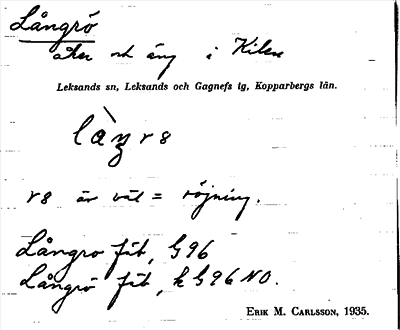 Långrö
åker och äng i Kilen
Leksands sn, Leksands och Gagnefs tg, Kopparbergs län.
r8 är väl = röjning.
Långrö fåb, G96
Långrö fåb, k G96 NO.
ERIK M. CARLSSON, 1935.